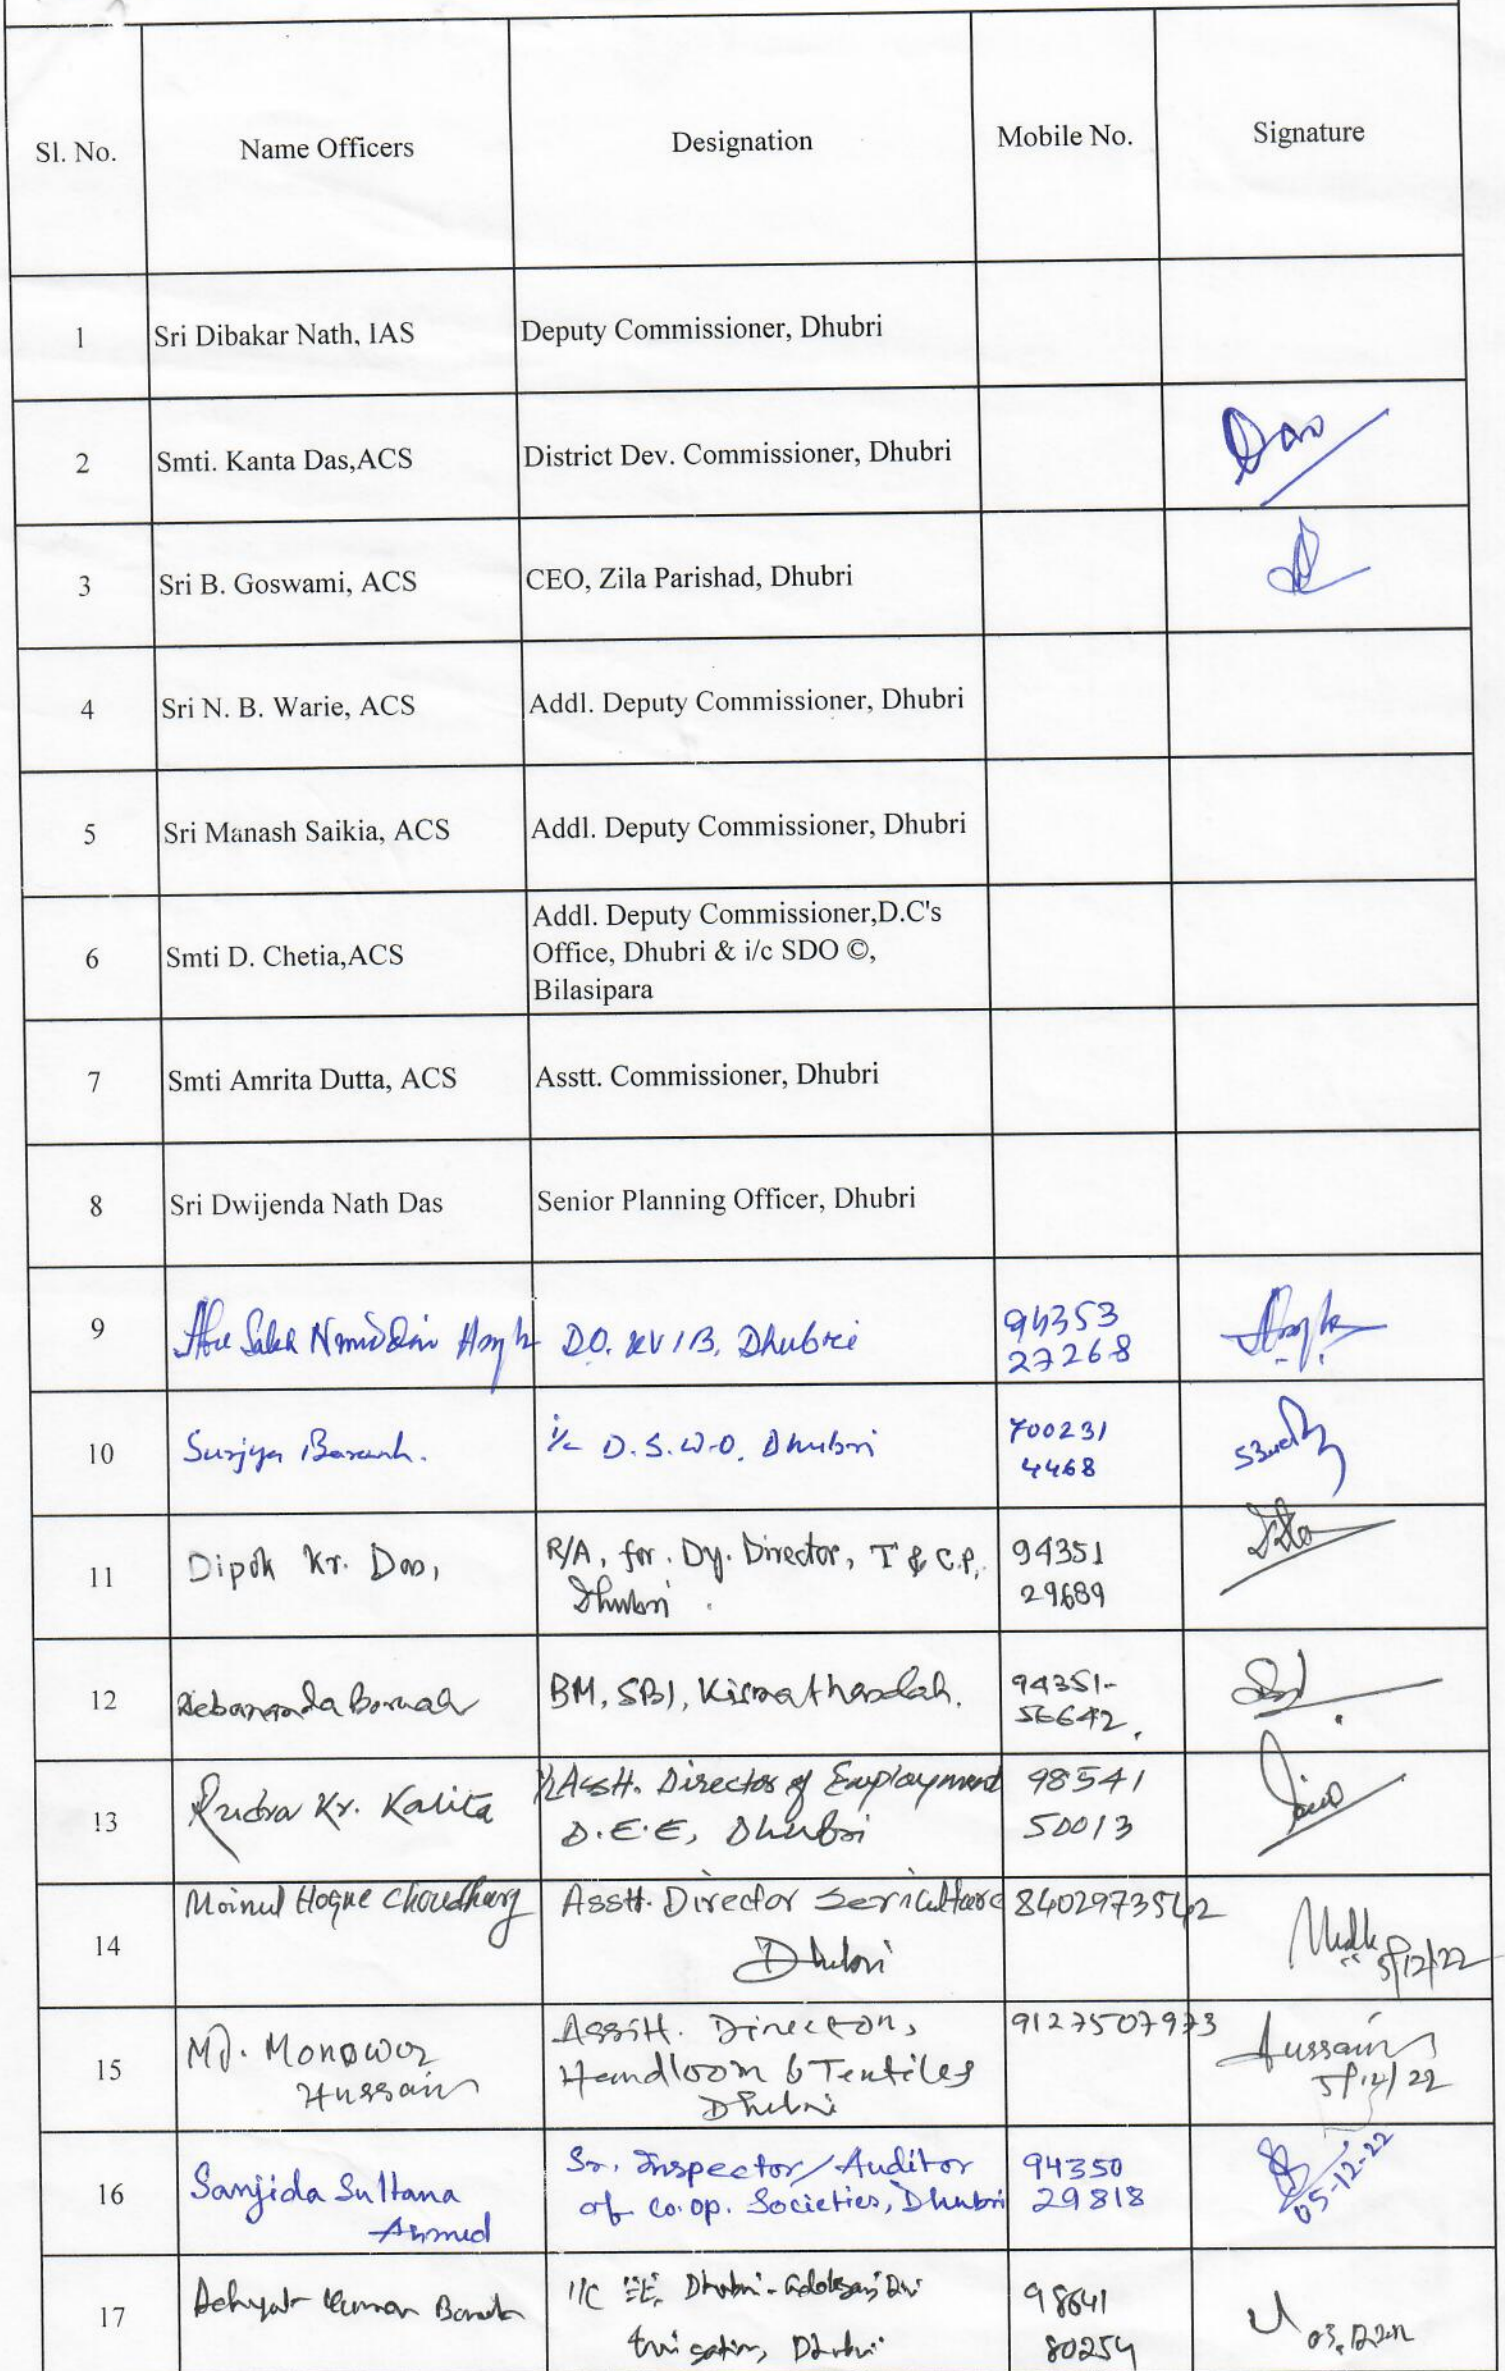 Sl. No. Name Officers Designation Mobile No. Signature
1 Sri Dibakar Nath, IAS Deputy Commissioner, Dhubri
2 Smti. Kanta Das,ACS District Dev. Commissioner, Dhubri
3 Sri B. Goswami, ACS CEO, Zila Parishad, Dhubri
4 Sri N. B. Warie, ACS Addl. Deputy Commissioner, Dhubri
5 Sri Manash Saikia, ACS Addl. Deputy Commissioner, Dhubri
6 Smti D. Chetia,ACS Addl. Deputy Commissioner,D.C's
Office, Dhubri & i/c SDO ©,
Bilasipara
7 Smti Amrita Dutta, ACS Asstt. Commissioner, Dhubri
8 Sri Dwijenda Nath Das Senior Planning Officer, Dhubri
9 DO. KVIB, Dhubri 94353
27268
10 Surjya i/c D.S.W.O. Dhubri 700231
4468
11 Dipok Kr. Das, R/A, for. Dy. Director, T & C.P, 94351
Dhubri . 29689
12 Debananda Boruah BM, SBI, 94351-
56642.
13 Rudra Kr. Kalita i/c Asstt. Director of Employment 98541
D.E.E, Dhubri 50013
14 Moinul Hoque Choudhury Asstt. Director Sericulture 8402973542
Dhubri 5/12/22
15 Md. Monowar Asstt. Director, 9127507973 Hussain
Hussain Handloom & Textiles 5/12/22
Dhubri
16 Sanjida Sultana Sr. Inspector/Auditor 94350
Ahmed of Co.op. Societies, Dhubri 29818 05-12-22
17 Kumar i/c EE, Dhubri- 98641
Irrigation, Dhubri 80254